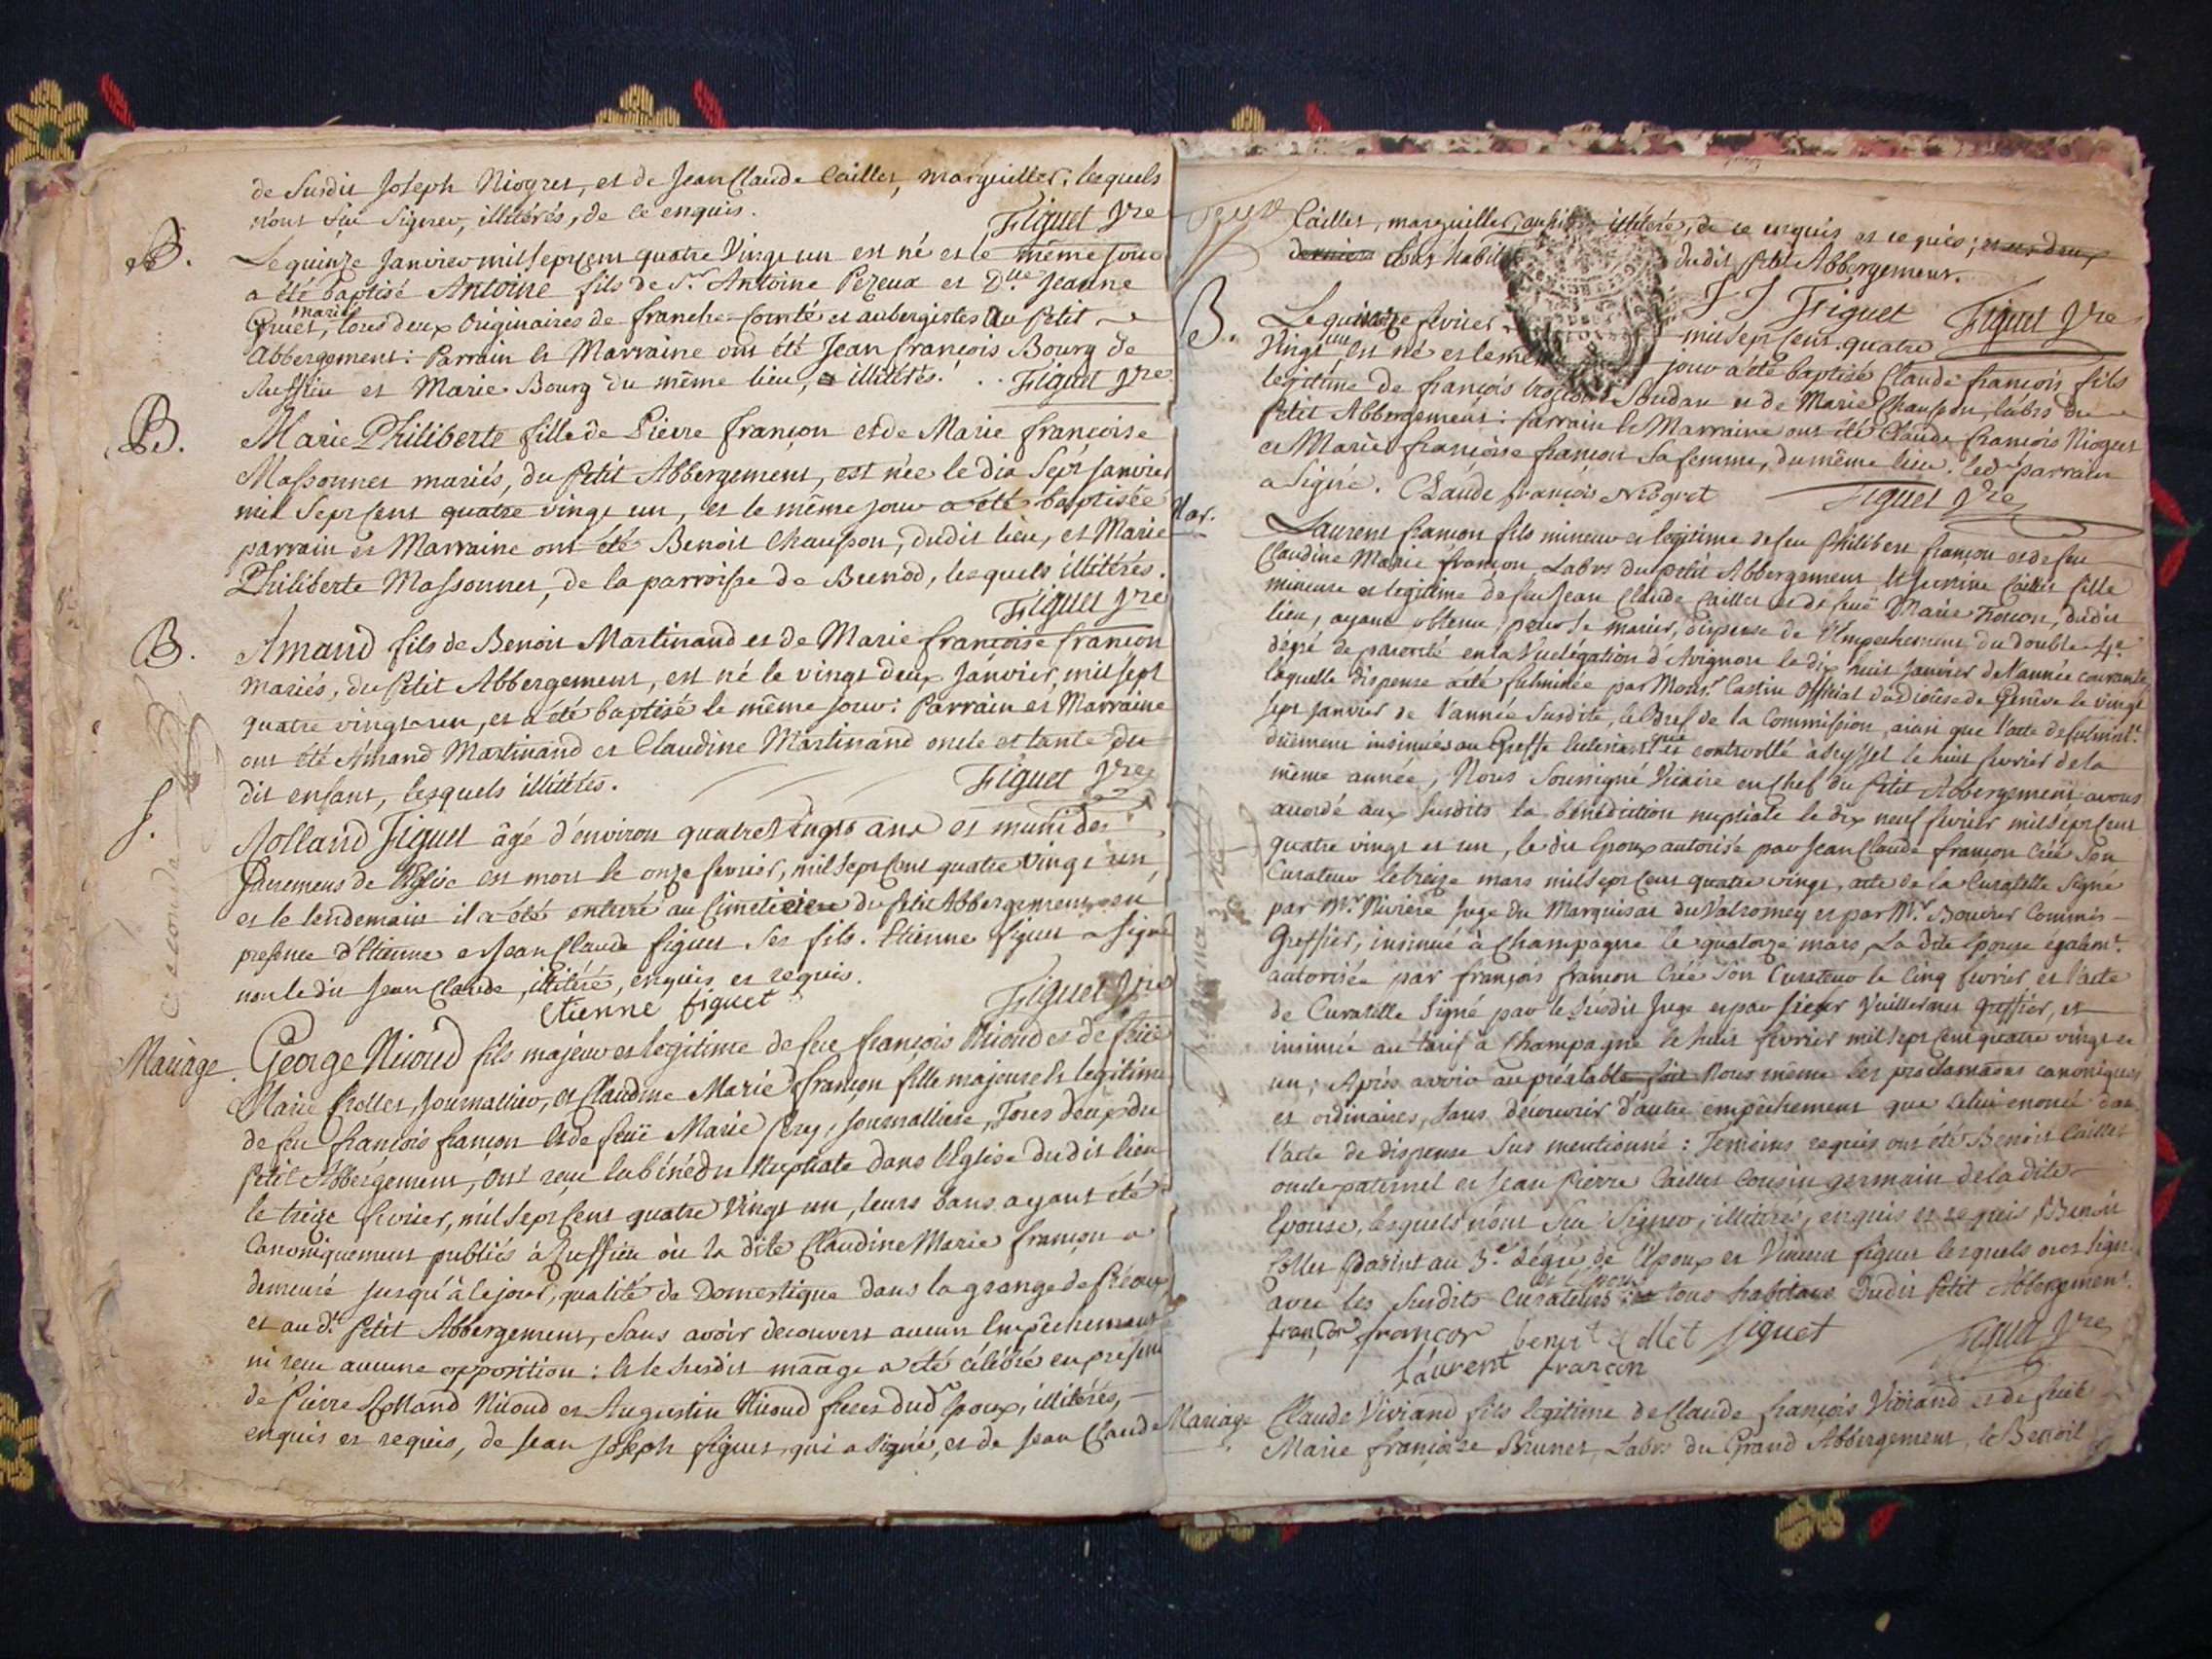 de Susdit Joseph Niogret, et de Jean Claude Caillet, marguillier, lesquels
n'ont Sçu Signer, illitérés, de ce enquis.
Figuet Vre
B.
Le quinze Janvier mil sept cent quatre Vingt un est né et le même jour
a été baptisé Antoine fils de Sr Antoine Pezeux et Dlle Jeanne
mariés
Gruet, tous deux Originaires de franche-Comté et aubergistes Au Petit
Abbergement: Parrain et Marraine ont été Jean françois Bourg de
Ruffieu et Marie Bourg du même lieu, illitérés. Figuet Vre
B.
Marie Philiberte fille de Pierre françon et de Marie françoise
Massonnet mariés, du Petit Abbergement, est née le dix Sept Janvier
mil Sept Cent quatre vingt un, et le même jour a été baptisée
parrain et Marraine ont été Benoit Chaupon, dudit lieu, et Marie
Philiberte Massonnet, de la parroisse de Brenod, lesquels illitérés.
Figuet Vre
B.
Amand fils de Benoit Martinand et de Marie françoise françon
mariés, du Petit Abbergement, est né le vingt deux Janvier, mil sept
quatre vingt un, et a été baptisé le même jour: Parrain et Marraine
ont été Amand Martinand et Claudine Martinand oncle et tante du
dit enfant, lesquels illitérés.
Figuet Vre
S.
Rolland Figuet âgé d'environ quatre Vingts ans et muni des
Sacremens de l'Eglise est mort le onze fevrier, mil sept cent quatre vingt un,
et le lendemain il a été enterré au Cimetiere du Petit Abbergement en
presence d'Etienne et Jean Claude figuet Ses fils. Etienne figuet a Signé
non le dit Jean Claude, illitéré, enquis et requis.
Etienne figuet
Figuet Vre
Mariage
George Nicoud fils majeur et legitime de feu françois Nicoud et de feüe
Marie frollet, Journallier, et Claudine Marie françon fille majeure et legitime
de feu françois françon et de feüe Marie Pery, journalliere, Tous deux du
Petit Abbergement, ont reçu la bénédn Nuptiale dans l'Eglise dudit lieu
le treize fevrier, mil sept cent quatre Vingt un, leurs bans ayant été
Canoniquement publiés à Ruffieu où la dite Claudine Marie françon a
demeuré jusqu'à ce jour, qualité de Domestique dans la grange de Préoux
et au dt Petit Abbergement, Sans avoir decouvert aucun Empêchement
ni reçu aucune opposition: et le susdit mariage a été célébré en presence
de Pierre Rolland Nicoud et Augustin Nicoud freres dud. Epoux, illitérés,
enquis et requis, de Jean Joseph figuet, qui a signé, et de Jean Claude
Caillet, marguillier, aussi illitéré, de ce enquis et requis;
tous habit dudit Petit Abbergement.
J J Figuet Figuet Vre
B.
Le quinze fevrier mil sept cent quatre
Vingt un est né et le même jour a été baptisé Claude françois fils
legitime de françois Soudan et de Marie Chaupon, labrs du
Petit Abbergement: Parrain et Marraine ont été Claude françois Niogret
et Marie françoise françon Sa femme, du même lieu. led. parrain
a Signé. Claude françois Niogret Figuet Vre
Mar.
Laurent françon fils mineur et legitime de feu Philibert françon et de feu
Claudine Marie françon Labrs du petit Abbergement et Caillet fille
mineure et legitime de feu Jean Claude Caillet et de feüe Marie, dudit
lieu, ayant obtenu, pour Se marier, dispense de l'Empechement du double 4e
dégré de parenté en la Vicelégation d'Avignon le dix huit Janvier de l'année courante
laquelle dispense a été fulminée par Monsr Castin Official du diocèse de Genêve le vingt
sept Janvier de l'année Susdite, le Bref de la Commission, ainsi que l'acte de fulmint
duëment insinués au Greffe et controllé à Seyssel le huit fevrier de la
même année, Nous Soussigné Vicaire en Chef du Petit Abbergement avons
accordé aux Susdits la bénédiction nuptiale le dix neuf fevrier mil sept cent
quatre vingt et un, le dit Epoux autorisé par Jean Claude françon Créé Son
Curateur le treize mars mil sept cent quatre vingt, acte de la Curatelle Signé
par Mr Riviere Juge du Marquisat du Valromey et par Mr Bouvier Commis-
Greffier, insinué à Champagne le quatorze mars, La dite Epouse égalemt
autorisée par françois françon Créé Son Curateur le Cinq fevrier et l'acte
de Curatelle Signé par le Susdit Juge et par Sieur Vuillermet Greffier, et
insinué au tarif à Champagne le huit fevrier mil sept cent quatre vingt et
un; Après avoir au préalable fait Nous même les proclamaôns canoniques
et ordinaires, Sans découvrir d'autre empêchement que celui enoncé dans
l'acte de dispense Sus mentionné: Temoins requis ont été Benoit Caillet
oncle paternel et Jean Pierre Caillet Cousin germain de la dite
Epouse, lesquels n'ont Sçu Signer, illitérés, enquis et requis, Benoit
Collet parent au 3e dégré de l'Epoux et Vincent figuet lesquels ont Signé
et l'epoux
avec les Susdits Curateurs, tous habitans Dudit Petit Abbergement.
françon françon benoit Collet figuet Figuet Vre
Laurent françon
Mariage
Claude Viviand fils legitime de Claude françois Viviand et de feüe
Marie françoise Brunet, Labrs du Grand Abbergement, et Benoit